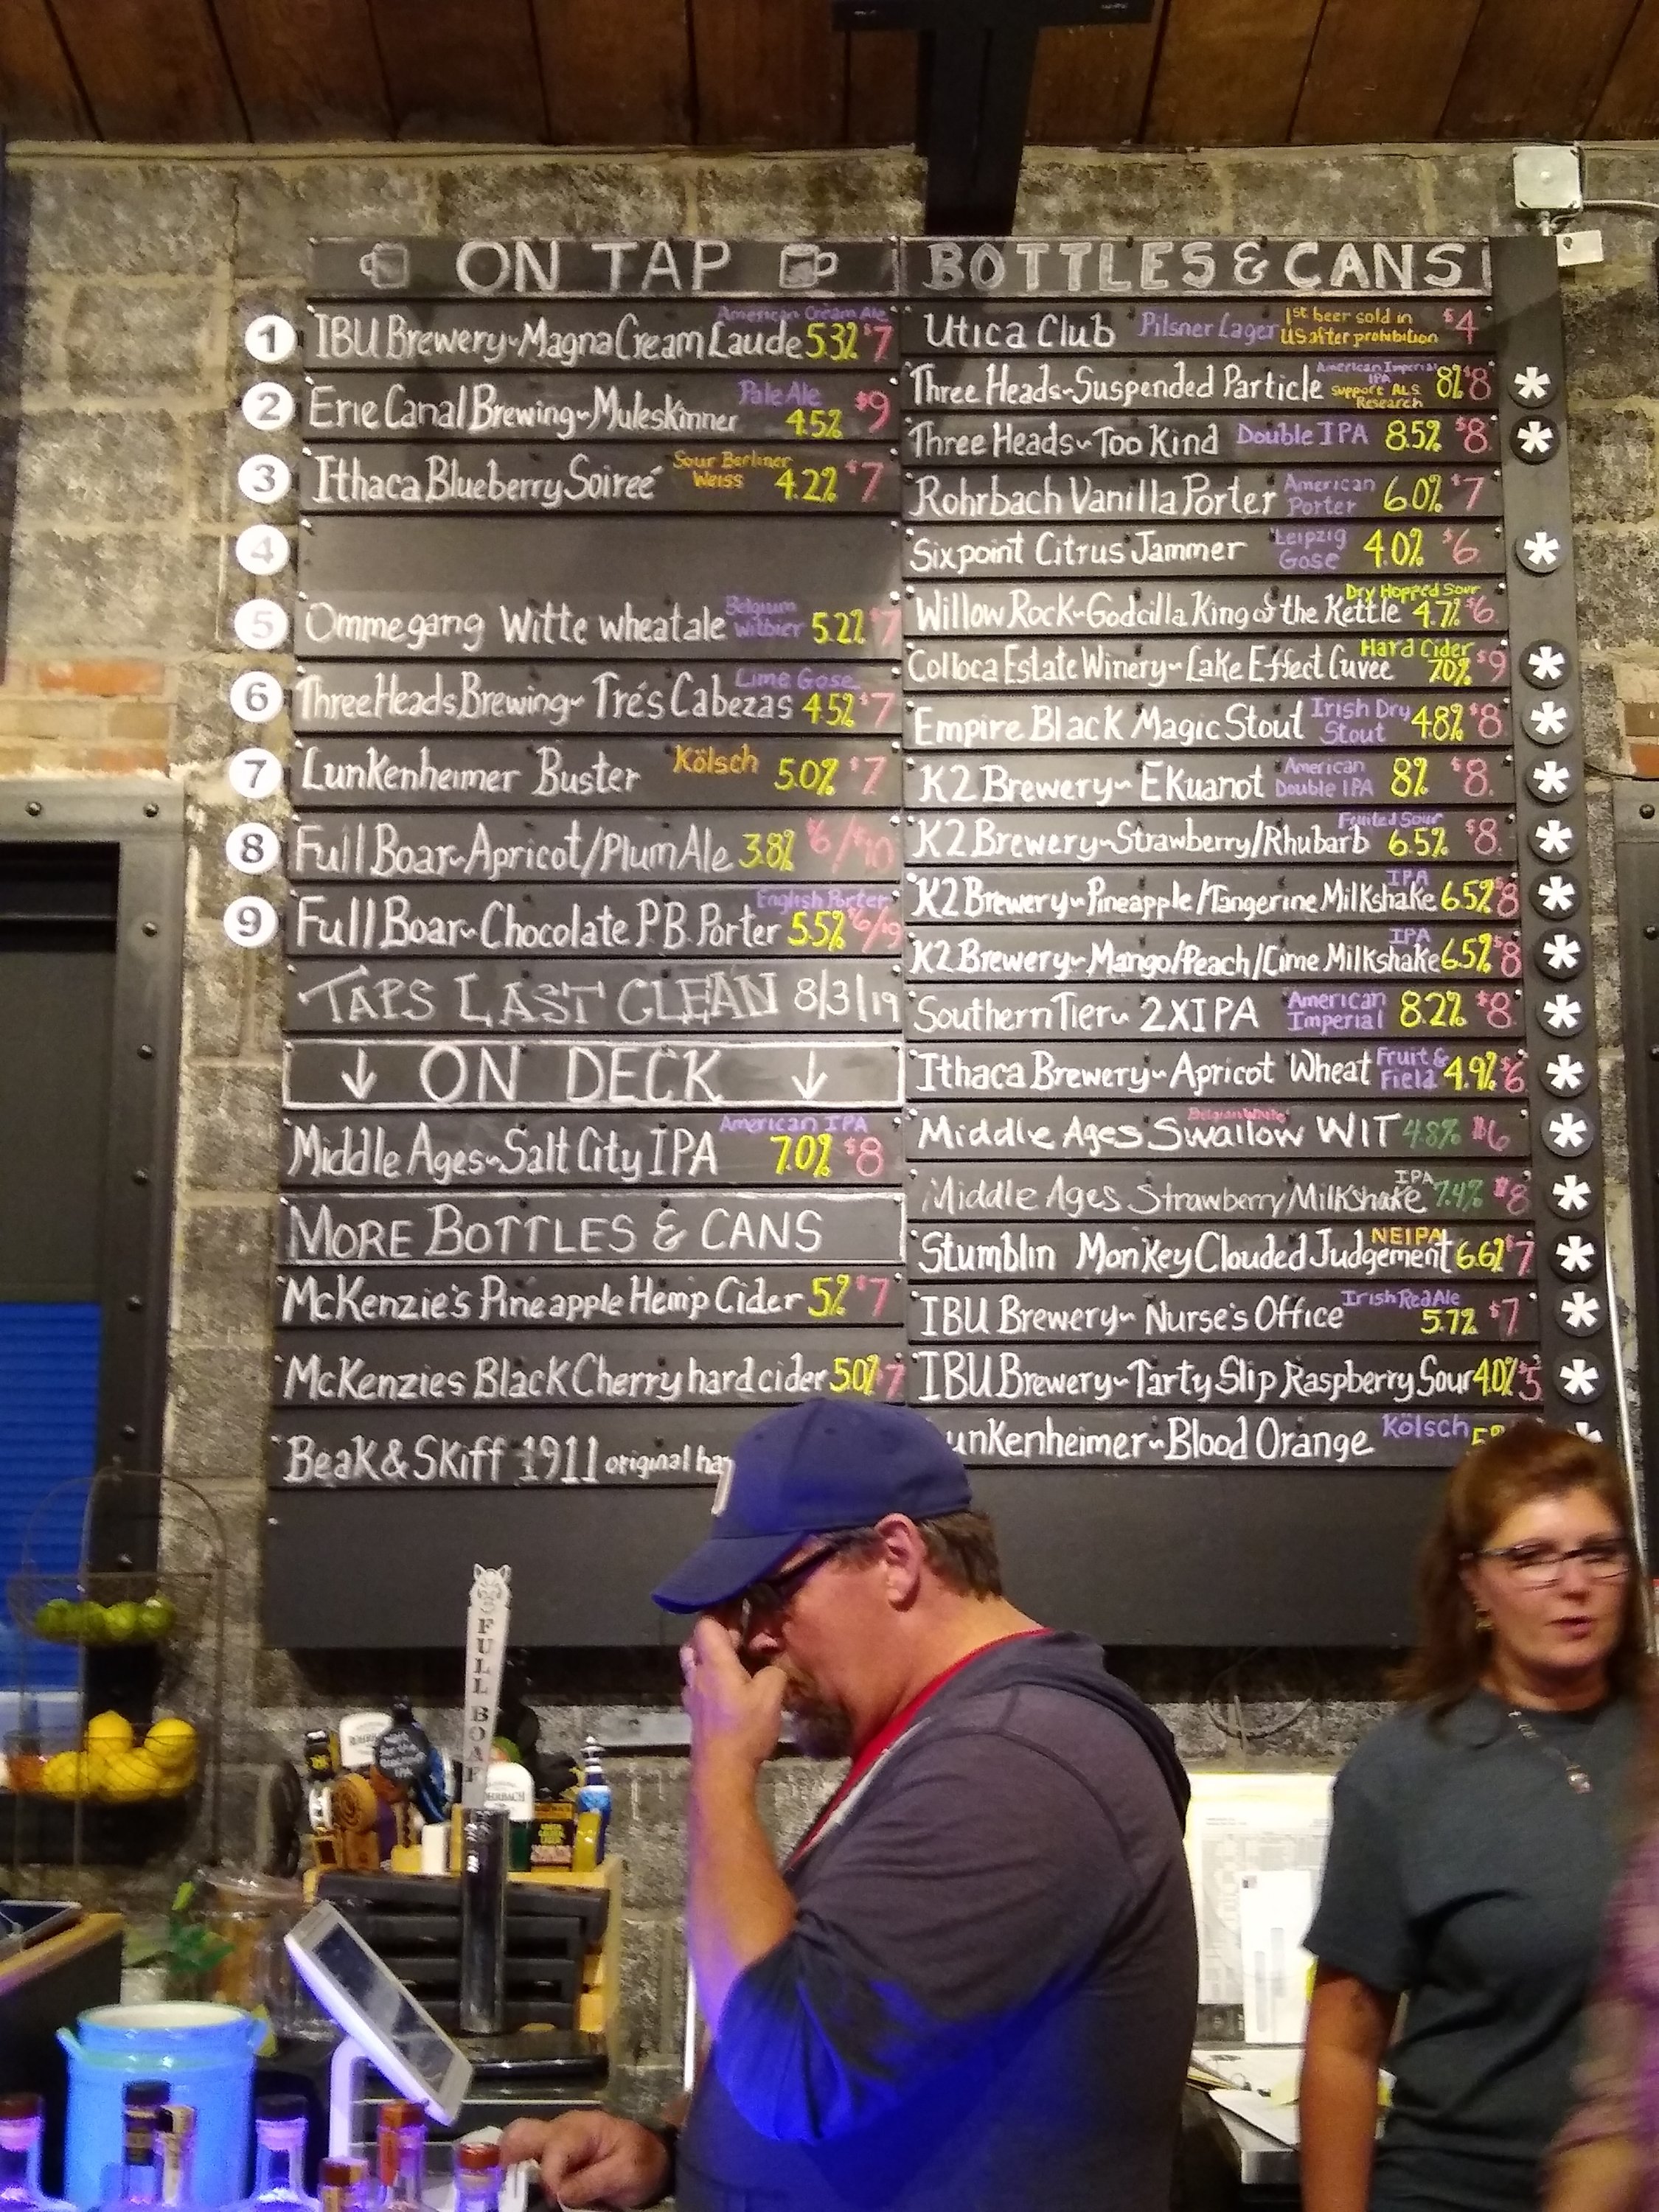 ON TAP
1 IBU Brewery~Magna Cream Laude American Cream Ale 5.3% $7
2 Erie Canal Brewing~Muleskinner Pale Ale 4.5% $9
3 Ithaca Blueberry Soireé Sour Berliner Weiss 4.2% $7
4
5 Ommegang Witte wheat ale Belgium Witbier 5.2% $7
6 Three Heads Brewing~ Trés Cabezas Lime Gose 4.5% $7
7 Lunkenheimer Buster Kölsch 5.0% $7
8 Full Boar~Apricot/Plum Ale 3.8% $6/$10
9 Full Boar~Chocolate P.B. Porter English Porter 5.5% $6/$9
TAPS LAST CLEAN 8/3/19
↓ ON DECK ↓
Middle Ages~Salt City IPA American IPA 7.0% $8
MORE BOTTLES & CANS
McKenzie's Pineapple Hemp Cider 5% $7
McKenzies Black Cherry hard cider 5.0% $7
Beak & Skiff 1911 original
BOTTLES & CANS
Utica Club Pilsner Lager 1st beer sold in US after prohibition $4
Three Heads~Suspended Particle American Imperial IPA Support ALS Research 8% $8 *
Three Heads~Too Kind Double IPA 8.5% $8 *
Rohrbach Vanilla Porter American Porter 6.0% $7
Sixpoint Citrus Jammer Leipzig Gose 4.0% $6 *
Willow Rock~Godcilla King of the Kettle Dry Hopped Sour 4.7% $6
Colloca Estate Winery~Lake Effect Cuvee Hard Cider 7.0% $9 *
Empire Black Magic Stout Irish Dry Stout 4.8% $8 *
K2 Brewery~ Ekuanot American Double IPA 8% $8 *
K2 Brewery~Strawberry/Rhubarb Fruited Sour 6.5% $8 *
K2 Brewery~Pineapple/Tangerine Milkshake IPA 6.5% $8 *
K2 Brewery~Mango/Peach/Lime Milkshake IPA 6.5% $8 *
Southern Tier~ 2XIPA American Imperial 8.2% $8 *
Ithaca Brewery~Apricot Wheat Fruit & Field 4.9% $6 *
Middle Ages Swallow WIT Belgian White 4.8% $6 *
Middle Ages Strawberry/Milkshake IPA 7.4% $8 *
Stumblin Monkey Clouded Judgement NEIPA 6.6% $7 *
IBU Brewery~ Nurse's Office Irish Red Ale 5.7% $7 *
IBU Brewery~Tarty Slip Raspberry Sour 4.0% $5 *
unkenheimer~Blood Orange Kölsch
FULL BOAR